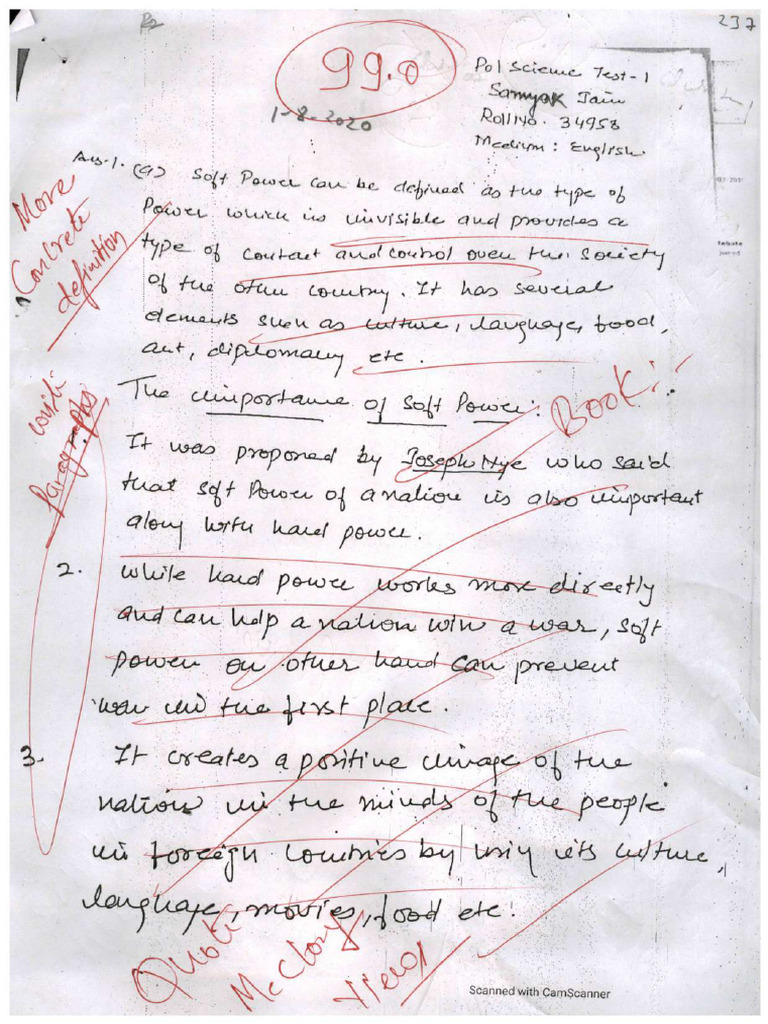 237
99.0
1-8-2020
Pol Science Test-1
Samyak Jain
Roll No. 34958
Medium : English
More
Concrete
definition
Ans-1. (a) Soft Power can be defined as the type of
Power which is invisible and provides a
type of contact and control over the society
of the other country. It has several
elements such as culture, language, food,
art, diplomacy etc.
write
paragraphs
The importance of Soft Power:
BOOK:-
1.
It was proposed by Joseph Nye who said
that soft Power of a nation is also important
along with hard power.
2. While hard power works more directly
and can help a nation win a war, soft
power on other hand can prevent
war in the first place.
3. It creates a positive image of the
nation in the minds of the people
in foreign countries by using its culture,
language, movies, food etc.
Quote
McClory
views
Scanned with CamScanner